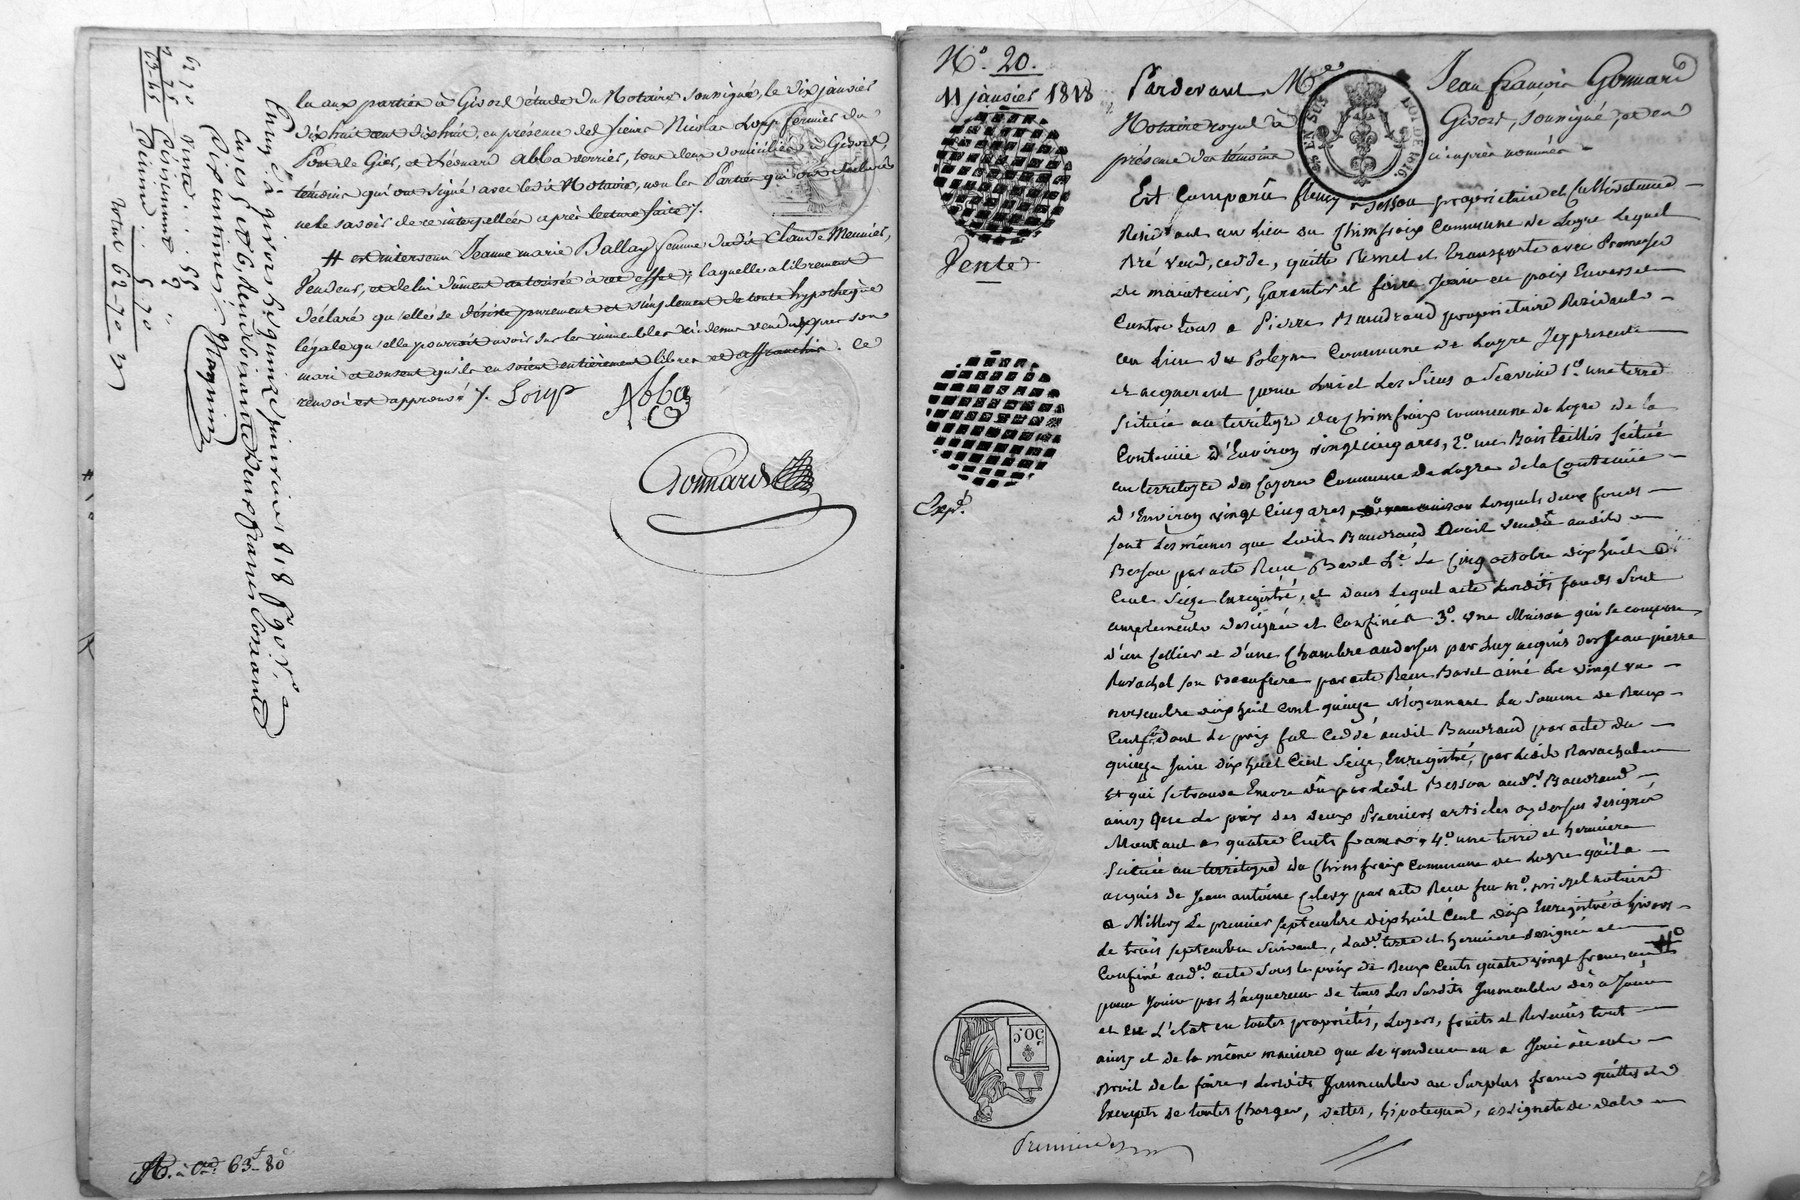 lu aux parties à Givors étude du Notaire soussigné, le dix janvier
dix huit cent dix huit, en présence des sieurs Nicolas Loup fermier du
Pont de Gier, et Léonard Abba verrier, tous deux domiciliés à Givors,
témoins qui ont signé avec ledit Notaire, non les Parties qui ont déclaré
ne le savoir de ce interpellées après lecture faite
# est intervenu Jeanne marie Ballay femme dudit Claude Meunier,
Vendeur, et de lui dûment autorisée à cet effet ; laquelle a librement
déclaré qu'elle se désiste purement et simplement de toute hypothèque
légale qu'elle pourrait avoir sur les immeubles ci-dessus vendus par son
mari et consent qu'ils en soient entièrement libres et affranchis. Ce
renvoi est approuvé Loup
Abba
Gonnard
Enreg.é à givors le quinze janvier 1818 f° 90 r.°
cases 5 et 6, reçu soixante deux francs soixante
dix centimes
62 70
Vente . . . 55
Désistement 2
Dixième . 5 . 70
Total 62 - 70
R. à 63 f 80 c
N.° 20.
11 janvier 1818
Vente
Exp.é
Pardevant M.e Jean françois Gonnard
Notaire royal à Givors, soussigné, et en
présence des témoins ci après nommés
Est Comparû fleury Besson propriétaire et Cultivateur
Résidant au Lieu du Chimfroix Commune de Loyre Lequel
a vend, cedde, quitte Remet et transporte avec Promesse
de maintenir, Garantir et faire Jouir en paix Envers et
Contre tous a Pierre Baudrand propriétaire Résidant
au Lieu de Commune de Loyre Icy present
et acquereur pour Lui et Les Siens a Scavoir 1.° une terre
Scituée au territoire du Chimfroix commune de Loyre de la
Contenüe d'Environ vingt cinq ares, 2.° un Bois taillis Scitué
au territoire des Commune de Loyre de la Contenüe
d'Environ vingt Cinq ares, Lesquels deux fonds
sont Les mêmes que Ledit Baudrand Avait Vendu audit
Besson par acte Reçu Le Cinq octobre dix huit
Cent Seize Enregistré, et dans Lequel acte Lesdits fonds Sont
amplement désignés et Confinés 3.° une Maison qui se compose
d'un Cellier et d'une Chambre au dessus par Luy acquis de Jean pierre
Ravachol son Beaufrere par acte Reçu ainé Le vingt un
novembre dix huit Cent quinze Moyennant La Somme de Deux
Cent f dont Le prix fut Cedé audit Baudrand par acte du
quinze Juin dix huit Cent Seize, Enregistré, par Ledit Ravachol
Et qui se trouve Encore dû par Ledit Besson aud.t Baudrand
ainsy que Le prix des Deux Premiers articles cy dessus désignés
Montant a quatre Cents francs 4.° une terre et hermière
Scituée au territoire du Chimfroix Commune de Loyre qu'il a
acquis de Jean antoine par acte Reçu feu M.e notaire
a Millery Le premier septembre dix huit Cent dix Enregistré à Givors
Le trois septembre Suivant, Lad.e terre et hermière désignée et
Confiné aud.t acte Sous le prix de Deux Cents quatre vingt francs
pour Jouir par L'acquereur de tous Les Susdits Immeubles dès a Jour
et L'état en toutes propriétés, Loyers, fruits et Revenûs tout
ainsy et de la même maniere que Le vendeur en a Joui
droit de le faire, Lesdits Immeubles au Surplus francs quittes et
Exempts de toutes Charges, dettes, hipoteques, assignats de dots
50 C.
EN SUS
LOI DE 1816.